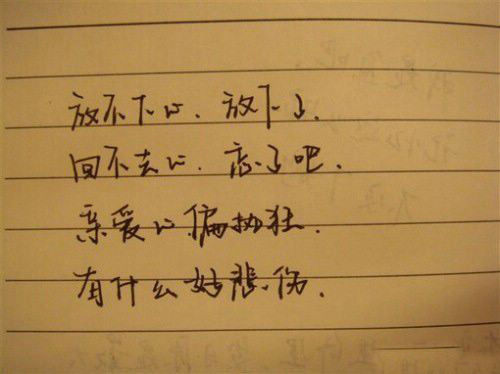 放不下的.放下了.
回不去的.忘了吧.
亲爱的偏执狂.
有什么好悲伤.